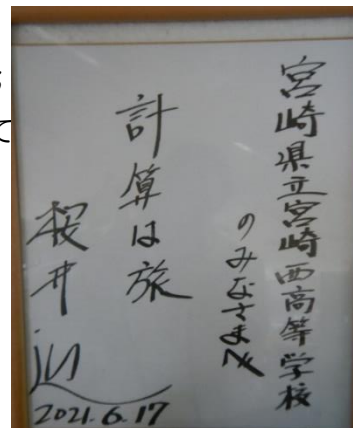 宮崎県立宮崎西高等学校
のみなさまへ
計算は旅
桜井進
2021.6.17